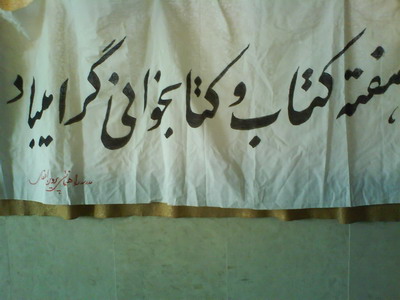 هفته کتاب و کتابخوانی گرامیباد